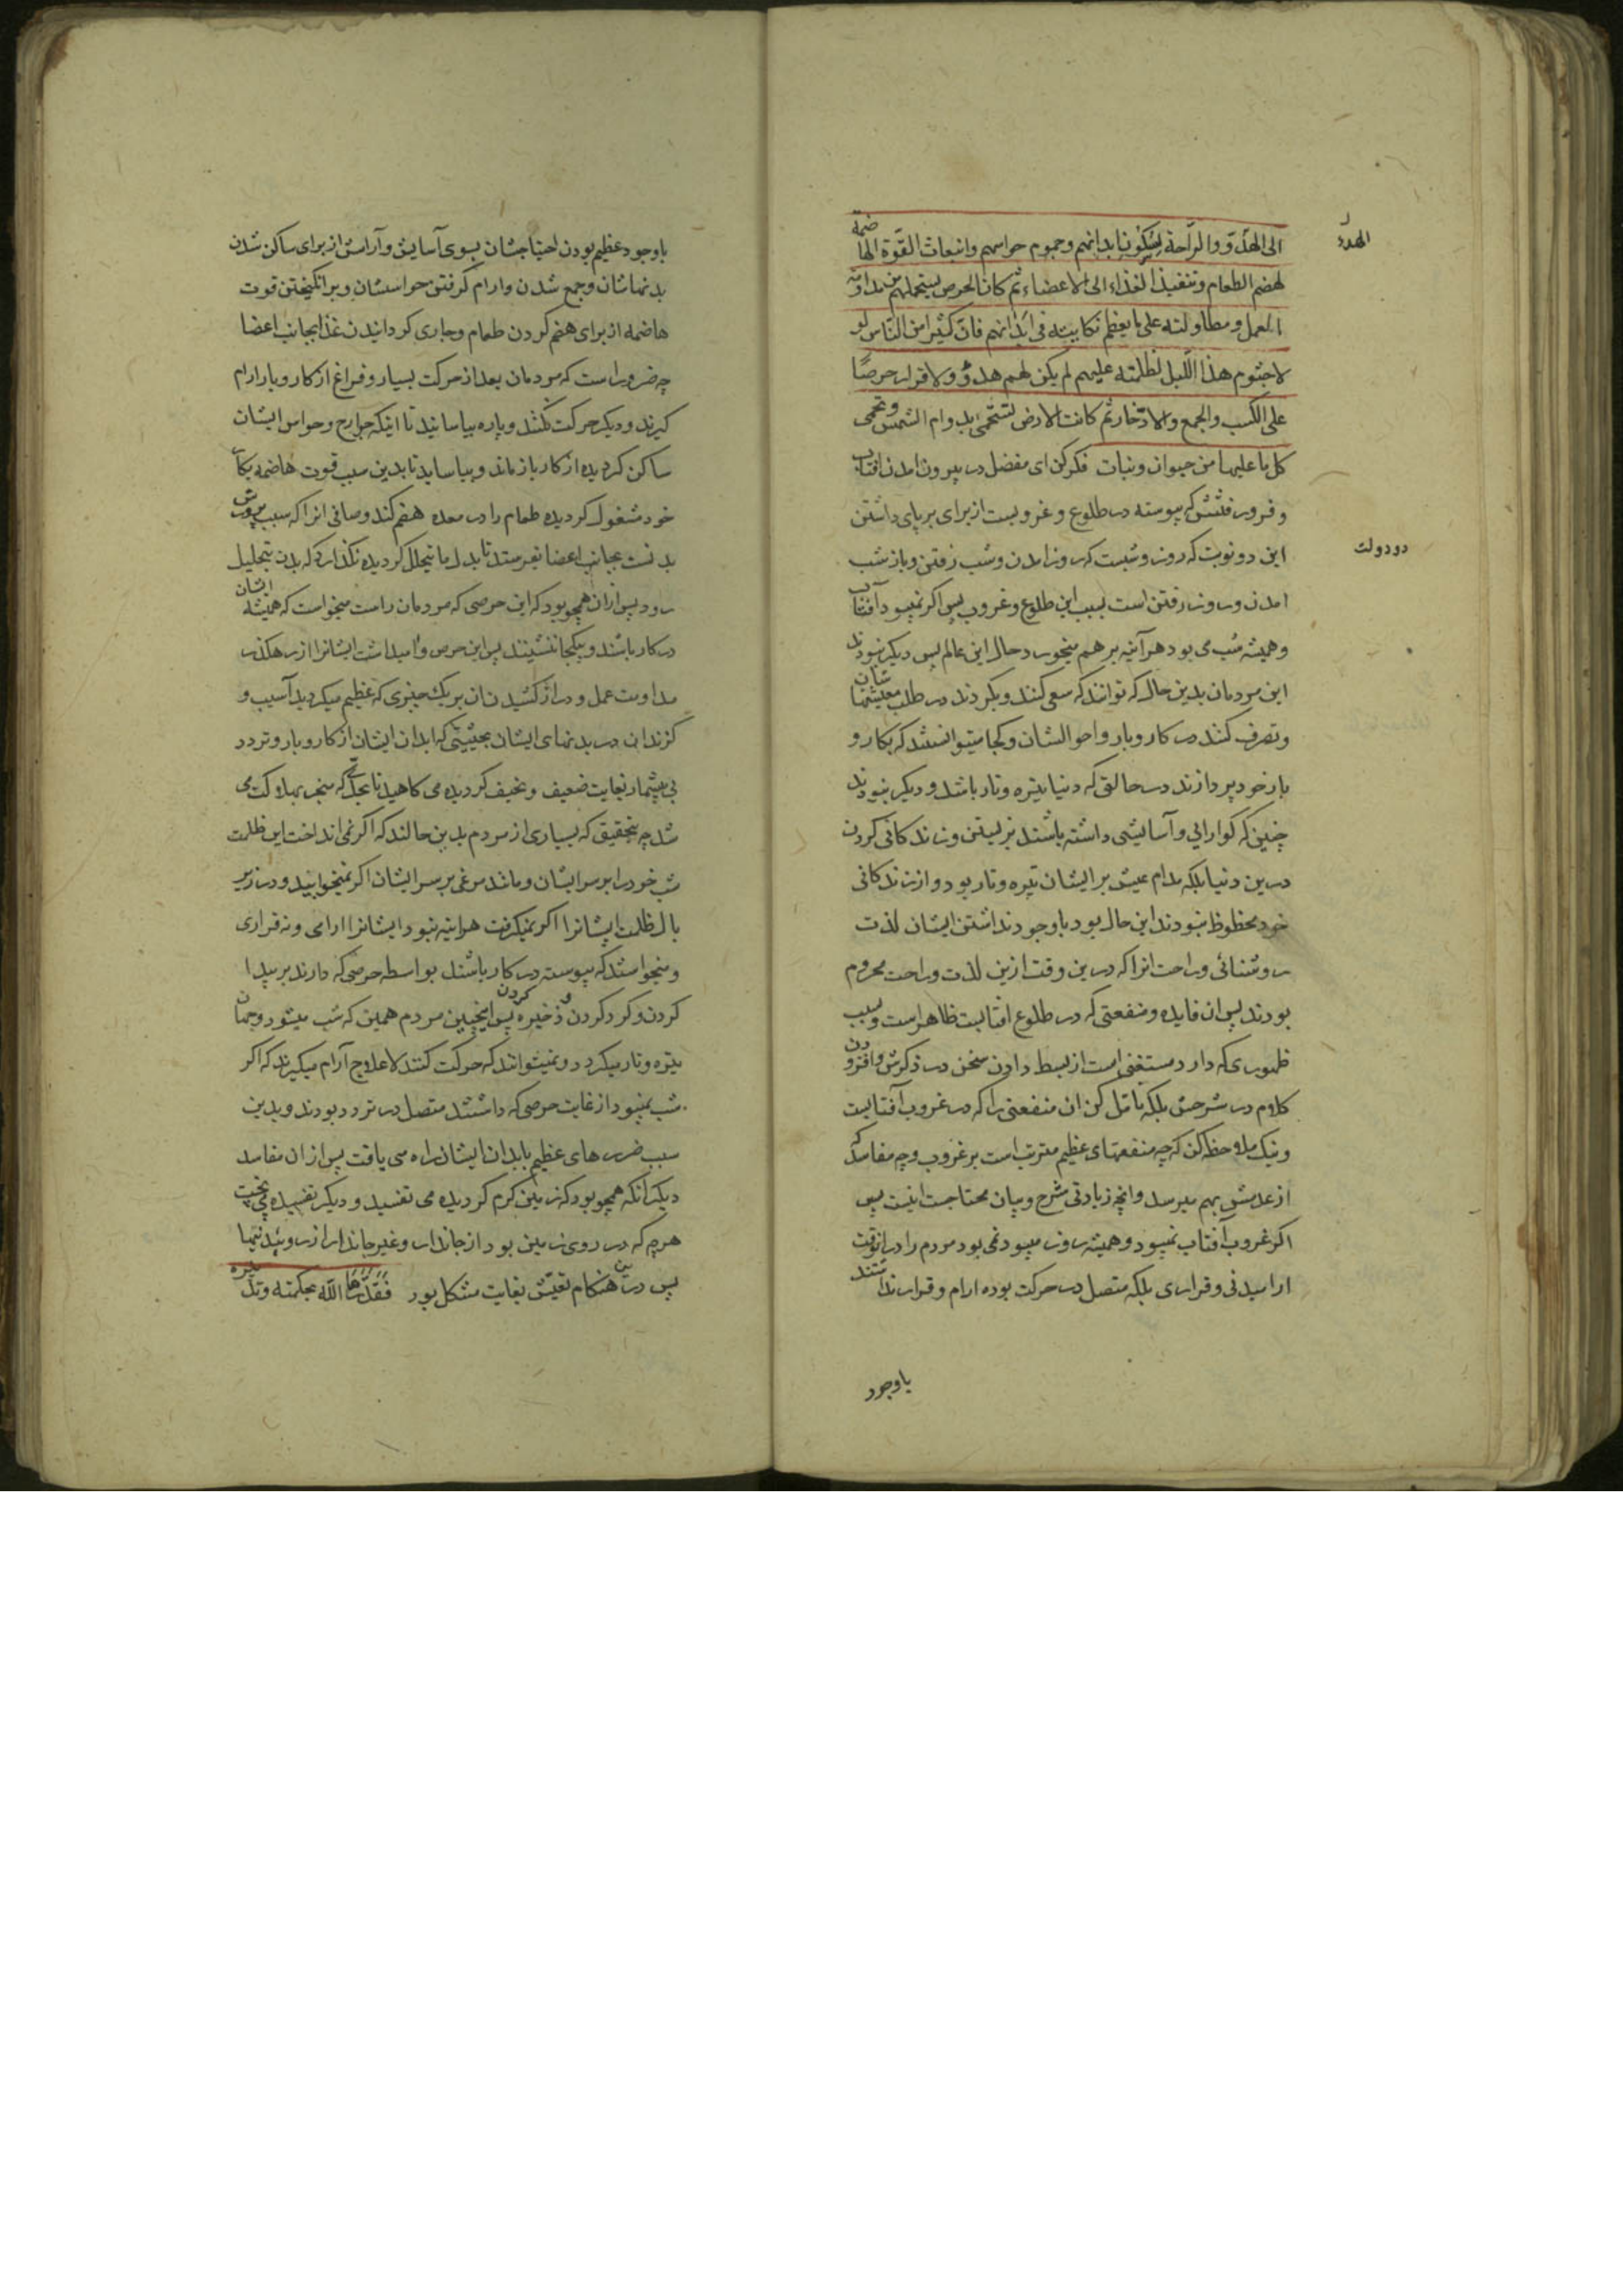 الى الهدّو والرّاحة لسكون ابدانهم وجموم حواسهم وانبعاث القوّة الهاضمة
لهضم الطعام وتنفيذ الغذاء الى الاعضاء ثم كان الحرص يستحملهم من مداومة
العمل ومطاولته على ما يعظم نكايته فى ابدانهم فانّ كثيرا من النّاس لو
لا جثوم هذا اللّيل لظلمته عليهم لم يكن لهم هدوٌ ولا قرار حرصًا
على الكسب والجمع والادّخار ثم كانت الارض تستحمى بدوام الشمس وتحمى
كل ما عليها من حيوان ونبات فكر كن اى مفضل در بيرون امدن افتاب
و فرو رفتنش كه پيوسته در طلوع و غروبست از براى برپاى داشتن
اين دو نوبت كه روز و شبست كه روز امدن و شب رفتن و باز شب
امدن و روز رفتن است بسبب اين طلوع و غروب پس اكر نميبود آفتاب
و هميشه شب مى بود هر آينه بر هم ميخورد حال اين عالم پس ديكر نبودند
اين مردمان بدين حال كه توانند كه سعى كنند و بكردند در طلب معيشتهاشان
و تصرف كنند در كار وبار و احوالشان و كجا ميتوانستند كه بكار و
بار خود پردازند در حالتى كه دنيا تيره و تار باشد و ديكر نبودند
چنين كه كوارايى و آسايشى داشته باشند بزيستن و زندكانى كردن
درين دنيا بلكه مدام عيش بر ايشان تيره و تار بود و از زندكانى
خود محظوظ نبودند اين حال بود با وجود نداشتن ايشان لذت
روشنائى و راحت انرا كه درين وقت ازين لذت و راحت محروم
بودند پس ان فايده و منفعتى كه در طلوع افتابست ظاهر است و بسبب
ظهورى كه دارد مستغنى است از بسط دادن سخن در ذكرش و افزودن
كلام در شرحش بلكه تامّل كن ان منفعتى را كه در غروب آفتابست
و نيك ملاحظه كن كه چه منفعتهاى عظيم مترتب است بر غروب و چه مفاسد كه
از عدمش بهم ميرسد و انچه زيادتى شرح و بيان محتاجست اينست پس
اكر غروب آفتاب نميبود و هميشه روز ميبود نمى بود مردم را در انوقت
اراميدنى و قرارى بلكه متصل در حركت بوده ارام و قرار نداشتند
باوجود
الهدء
دودولت
باوجود عظيم بودن احتياجشان بسوى آسايش و آرامش از براى ساكن شدن
بدنهاشان و جمع شدن و ارام كرفتن حواسشان و برانكيختن قوت
هاضمه از براى هضم كردن طعام و جارى كردانيدن غذا بجانب اعضا
چه ضرور است كه مردمان بعد از حركت بسيار و فراغ از كار و بار ارام
كيرند و ديكر حركت نكنند و پاره بياسايند تا اينكه جوارح و حواس ايشان
ساكن كرديده از كار باز ماند و بياسايد تا بدين سبب قوت هاضمه بكار
خود مشغول كرديده طعام را در معده هضم كند و صافى انرا كه سبب پرورش
بدنست بجانب اعضا بفرستد تا بدل ما يتحلل كرديده نكذارد كه بدن بتحليل
رود پس از ان همچو بود كه اين حرصى كه مردمان راست ميخواست كه هميشه ايشان
در كار باشند و بيكجا ننشينند پس اين حرص واميداشت ايشانرا از رهكذر
مداومت عمل و دراز كشيدن ان بر يك چيزى كه عظيم ميكرديد آسيب و
كزند ان در بدنهاى ايشان بحيثيتى كه ابدان ايشان از كار و بار و تردد
بى شمار بغايت ضعيف و نحيف كرديده مى كاهيد تا بحدّى كه منجر بهلاكت مى
شد چه بتحقيق كه بسيارى از مردم بدين حالند كه اكر نمى انداخت اين ظلمت
شب خود را بر سر ايشان و مانند مرغى بر سر ايشان اكر نميخوابيد و در زير
بال ظلمت ايشانرا اكر نميكرفت هراينه نبود ايشانرا ارامى و نه قرارى
و ميخواستند كه پيوسته در كار باشند بواسطه حرصى كه دارند بر پيدا
كردن و كرد كردن و ذخيره كردن پس اينچنين مردم همين كه شب ميشود و جهان
تيره و تار ميكردد و نميتوانند كه حركت كنند لاعلاج آرام ميكيرند كه اكر
شب نميبود از غايت حرصى كه داشتند متصل در تردد بودند و بدين
سبب ضررهاى عظيم بابدان ايشان راه مى يافت پس از ان مفاسد
ديكر انكه همچو بود كه زمين كرم كرديده مى تفسيد و ديكر تفسيده مى پخت
هرچه كه در روى زمين بود از جاندار و غير جاندار از روئيدنيها
پس درين هنكام تعيّش بغايت مشكل بود فقدّرها اللّه بحكمته وتدبيره